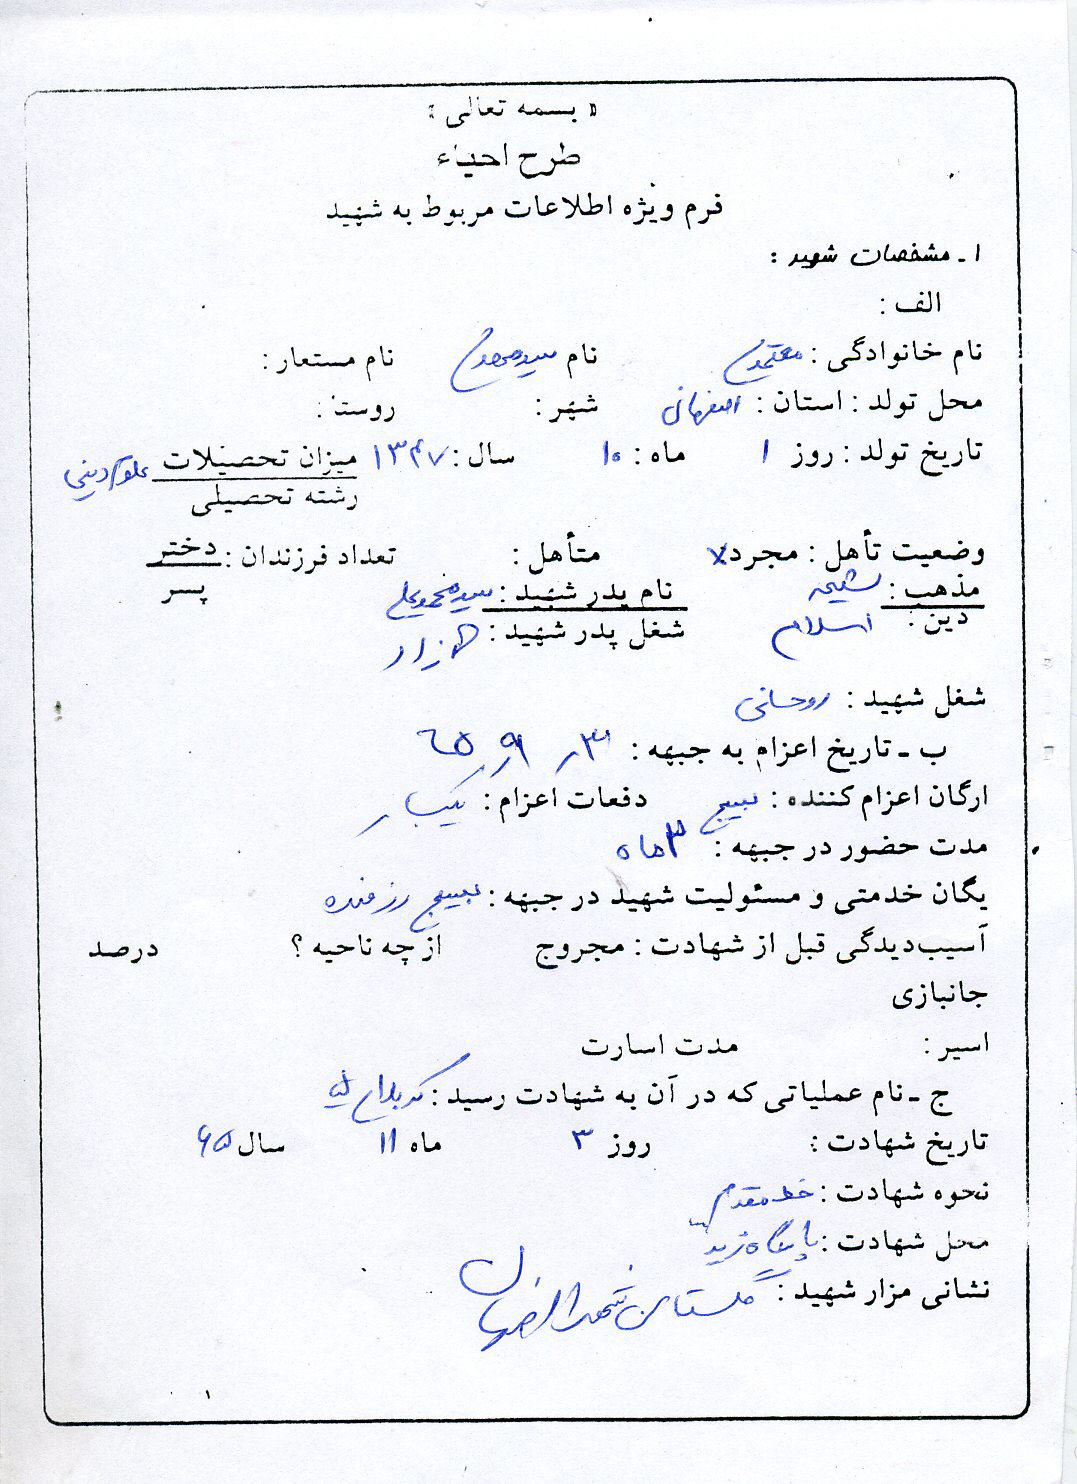 « بسمه تعالی »
طرح احیاء
فرم ویژه اطلاعات مربوط به شهید
۱ ـ مشخصات شهید :
الف :
نام خانوادگی : معتمدی نام سید مهدی نام مستعار :
محل تولد : استان : اصفهان شهر : روستا :
تاریخ تولد : روز ۱ ماه : ۱۰ سال : ۱۳۴۷ میزان تحصیلات علوم دینی
رشته تحصیلی
وضعیت تأهل : مجرد x متأهل : تعداد فرزندان : دختر
مذهب : شیعه نام پدر شهید : سید محمد علی پسر
دین : اسلام شغل پدر شهید :
شغل شهید : روحانی
ب ـ تاریخ اعزام به جبهه : ۳ ر ۹ ر ۶۵
ارگان اعزام کننده : بسیج دفعات اعزام : یکبار
مدت حضور در جبهه : ۳ ماه
یگان خدمتی و مسئولیت شهید در جبهه : بسیج رزمنده
آسیب‌دیدگی قبل از شهادت : مجروح از چه ناحیه ؟ درصد
جانبازی
اسیر : مدت اسارت
ج ـ نام عملیاتی که در آن به شهادت رسید : کربلای ۵
تاریخ شهادت : روز ۳ ماه ۱۱ سال ۶۵
نحوه شهادت : خط مقدم
محل شهادت : پاسگاه زید
نشانی مزار شهید : گلستان شهدا اصفهان
۱